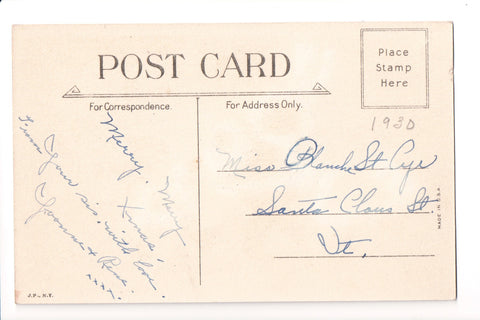 POST CARD
Place
Stamp
Here
For Correspondence.
For Address Only.
1930
Merry.
Merry
Xmas,
From Your sis. with love.
Yvonne & Rene
xxxx.
Miss Blanche St Cyr
Santa Claus St.
Vt.
MADE IN U.S.A.
J.P., N.Y.